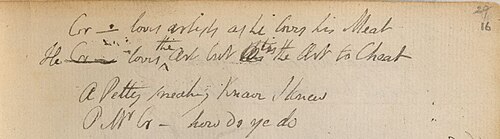 Cr— loves artists as he loves his Meat
He Cr— loves the Art but tis the Art to Cheat
A Petty sneaking Knave I knew
O Mr Cr— how do ye do
29
16